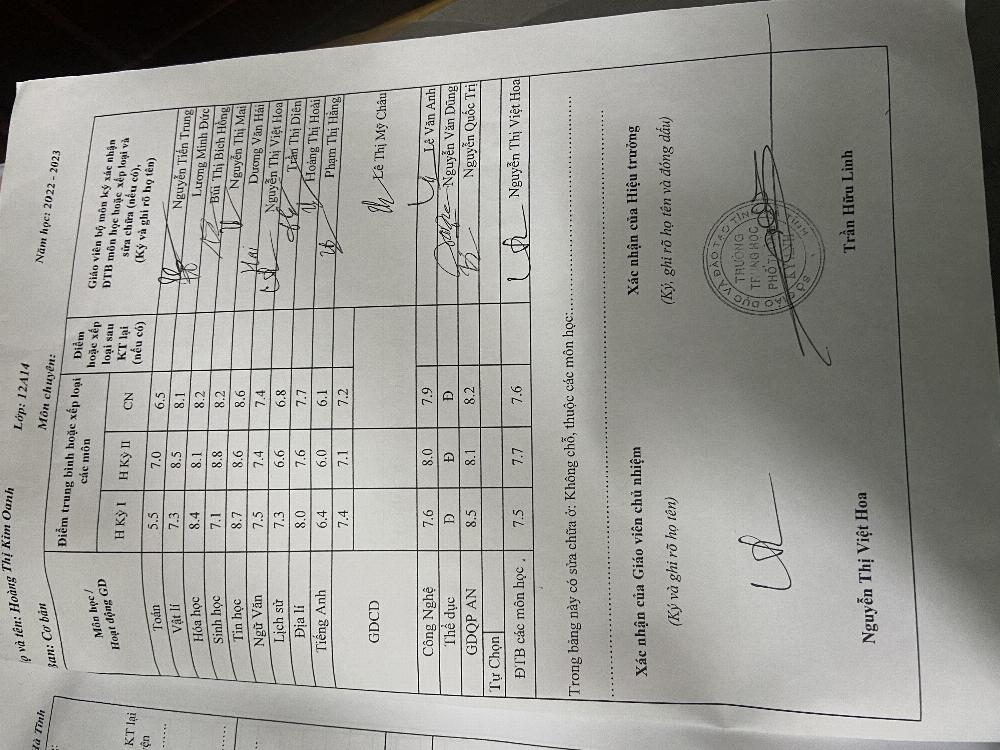 ọ và tên: Hoàng Thị Kim Oanh Lớp: 12A14 Năm học: 2022 - 2023
Ban: Cơ bản Môn chuyên:
Môn học / Hoạt động GD
Điểm trung bình hoặc xếp loại các môn
H Kỳ I H Kỳ II CN
Điểm hoặc xếp loại sau KT lại (nếu có)
Giáo viên bộ môn ký xác nhận
ĐTB môn học hoặc xếp loại và
sửa chữa (nếu có),
(Ký và ghi rõ họ tên)
Toán 5.5 7.0 6.5 Nguyễn Tiến Trung
Vật lí 7.3 8.5 8.1 Lương Minh Đức
Hóa học 8.4 8.1 8.2 Bùi Thị Bích Hồng
Sinh học 7.1 8.8 8.2 Nguyễn Thị Mai
Tin học 8.7 8.6 8.6 Dương Văn Hải
Ngữ Văn 7.5 7.4 7.4 Nguyễn Thị Việt Hoa
Lịch sử 7.3 6.6 6.8 Trần Thị Diên
Địa lí 8.0 7.6 7.7 Hoàng Thị Hoài
Tiếng Anh 6.4 6.0 6.1 Phạm Thị Hằng
GDCD 7.4 7.1 7.2 Lê Thị Mỹ Châu
Công Nghệ 7.6 8.0 7.9 Lê Văn Anh
Thể dục Đ Đ Đ Nguyễn Văn Dũng
GDQP AN 8.5 8.1 8.2 Nguyễn Quốc Trị
Tự Chọn
ĐTB các môn học 7.5 7.7 7.6 Nguyễn Thị Việt Hoa
Trong bảng này có sửa chữa ở: Không chỗ, thuộc các môn học:
Xác nhận của Giáo viên chủ nhiệm Xác nhận của Hiệu trưởng
(Ký và ghi rõ họ tên) (Ký, ghi rõ họ tên và đóng dấu)
TRƯỜNG
TRUNG HỌC
Nguyễn Thị Việt Hoa Trần Hữu Linh
Hà Tĩnh
KT lại